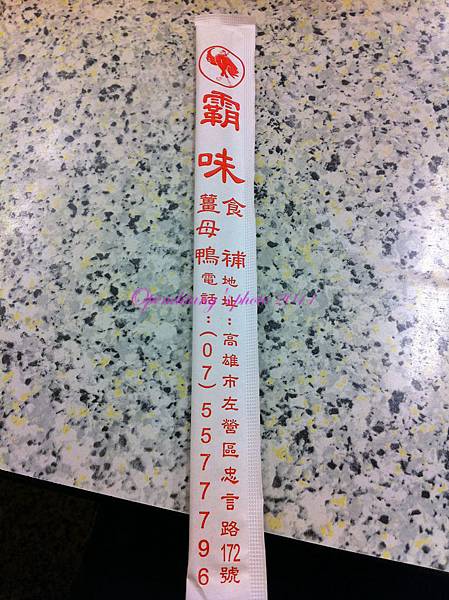 霸味
食補
薑母鴨
地址:高雄市左營區忠言路172號
電話:(07)5577796